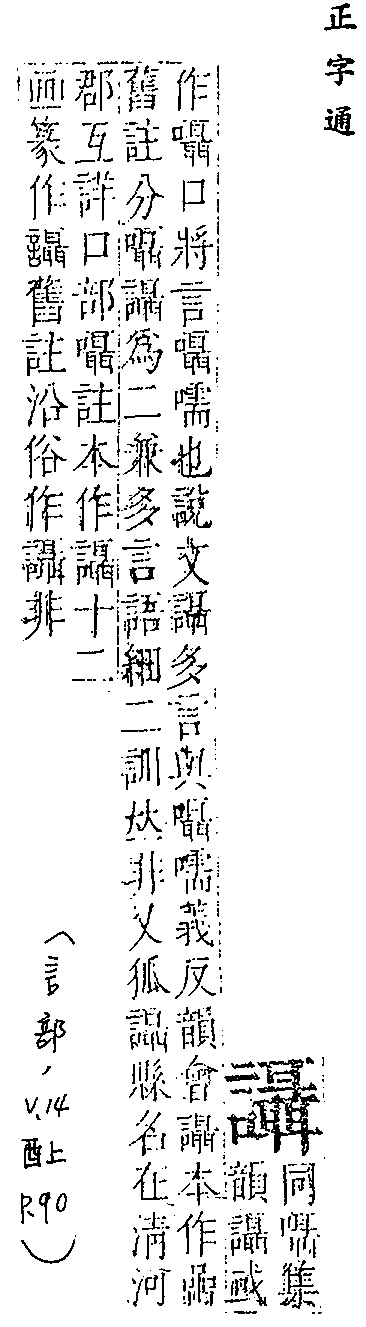 正字通
讘
同囁集
韻讘或
作囁口將言囁嚅也說文讘多言與囁嚅義反韻會讘本作喦
舊註分囁讘為二兼多言語細二訓𠀤非又狐讘縣名在清河
郡互詳口部囁註本作讘十二
画篆作讘舊註沿俗作讘非
(言部, V.14 酉上 P.90)